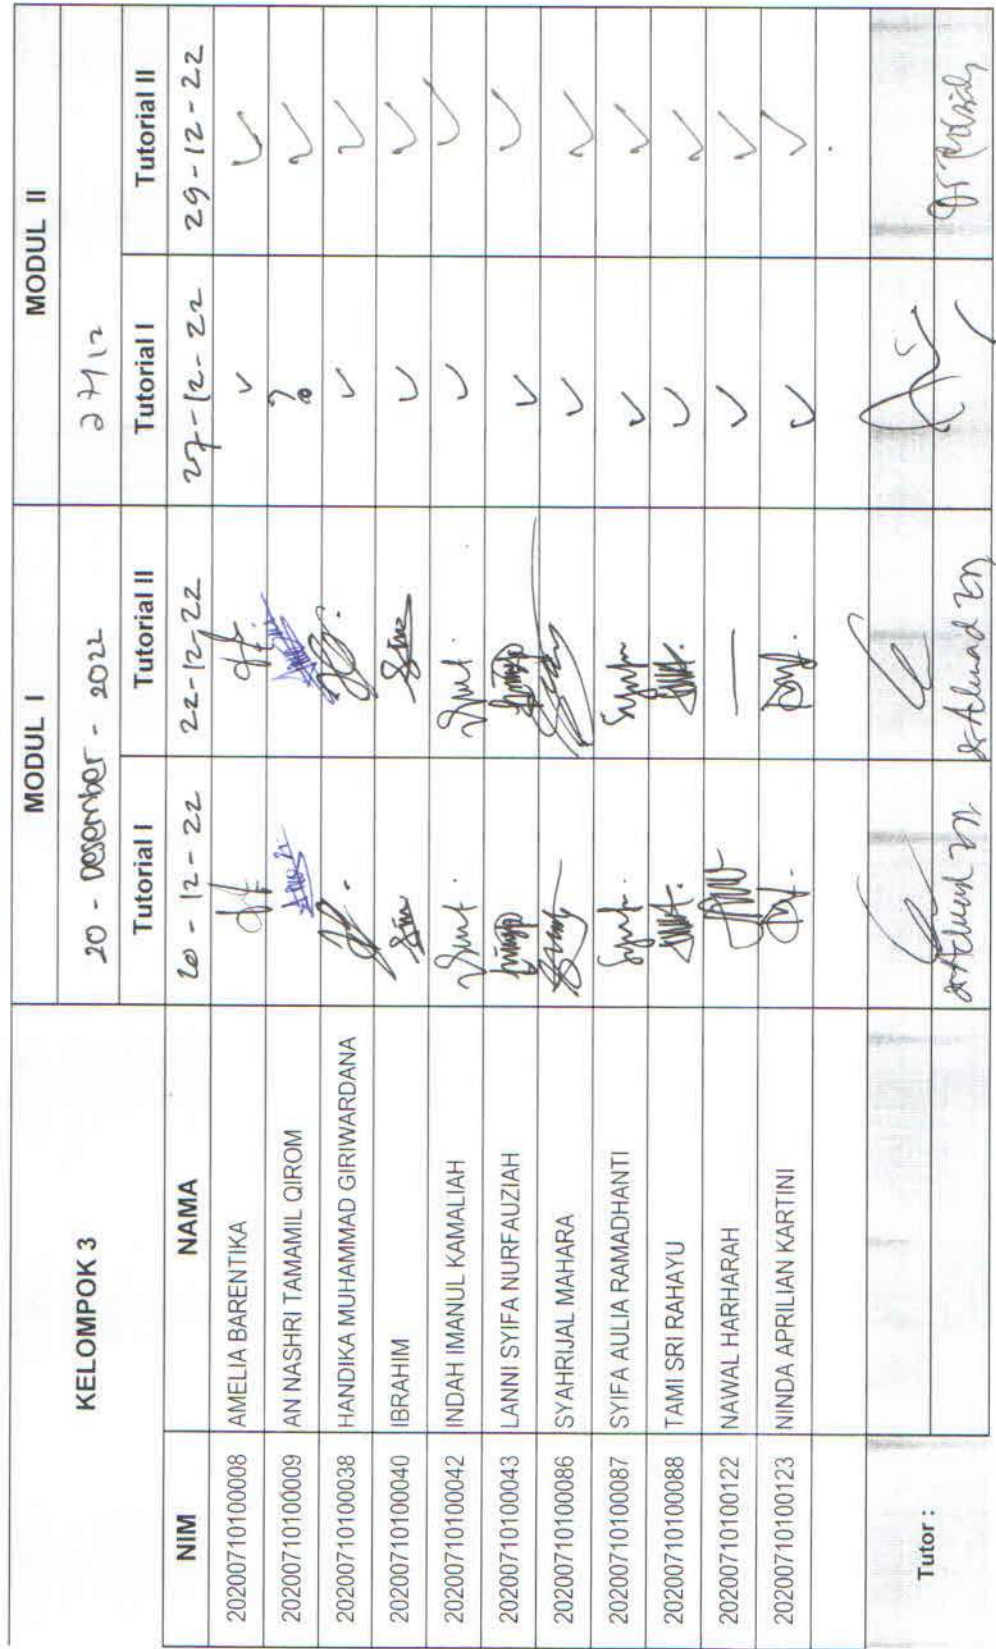 KELOMPOK 3 MODUL I MODUL II
20 - Desember - 2022 27/12
NIM NAMA Tutorial I Tutorial II Tutorial I Tutorial II
20 - 12 - 22 22-12-22 27-12-22 29-12-22
20200710100008 AMELIA BARENTIKA ✓ ✓
20200710100009 AN NASHRI TAMAMIL QIROM ✓
20200710100038 HANDIKA MUHAMMAD GIRIWARDANA ✓ ✓
20200710100040 IBRAHIM ✓ ✓
20200710100042 INDAH IMANUL KAMALIAH ✓ ✓
20200710100043 LANNI SYIFA NURFAUZIAH ✓ ✓
20200710100086 SYAHRIJAL MAHARA ✓ ✓
20200710100087 SYIFA AULIA RAMADHANTI ✓ ✓
20200710100088 TAMI SRI RAHAYU ✓ ✓
20200710100122 NAWAL HARHARAH — ✓ ✓
20200710100123 NINDA APRILIAN KARTINI ✓ ✓
Tutor :